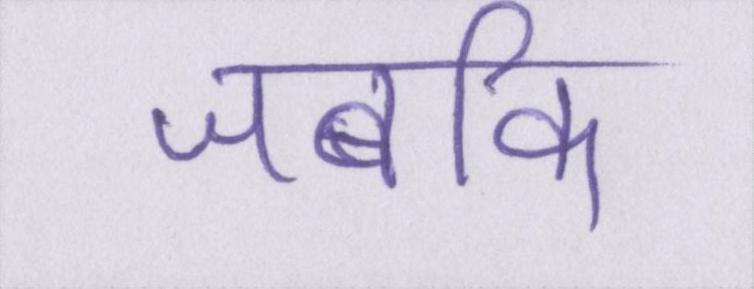 जबकि